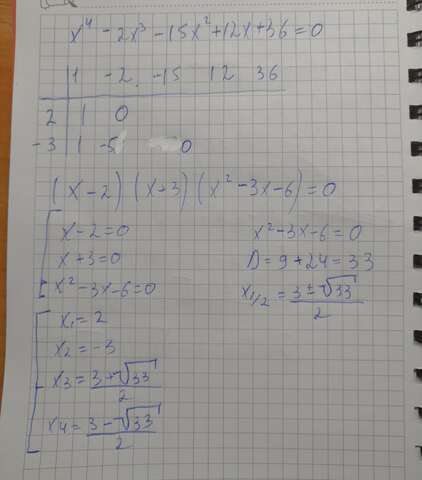 x⁴ - 2x³ - 15x² + 12x + 36 = 0
1 -2 -15 12 36
2 1 0
-3 1 -5 0
(x-2)(x+3)(x²-3x-6)=0
x-2=0
x+3=0
x²-3x-6=0
x²-3x-6=0
D=9+24=33
x₁/₂ = (3±√33)/2
x₁=2
x₂=-3
x₃=(3+√33)/2
x₄=(3-√33)/2